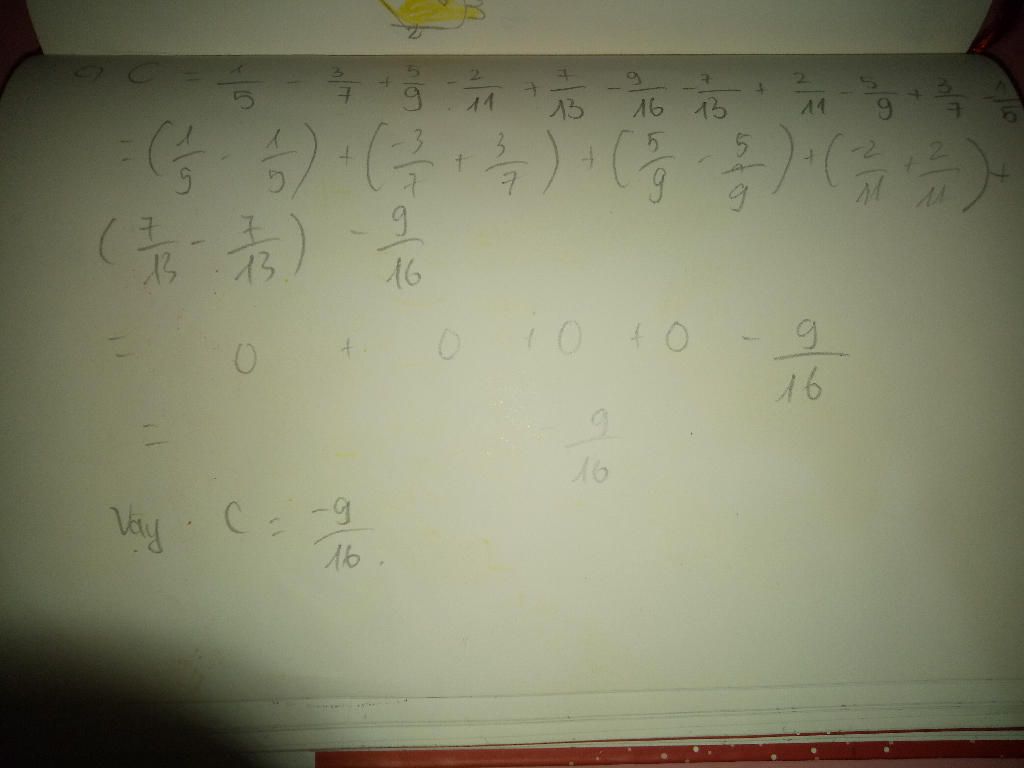 C = 1/5 - 3/7 + 5/9 - 2/11 + 7/13 - 9/16 - 7/13 + 2/11 - 5/9 + 3/7 - 1/5
= (1/5 - 1/5) + (-3/7 + 3/7) + (5/9 - 5/9) + (-2/11 + 2/11) +
(7/13 - 7/13) - 9/16
= 0 + 0 + 0 + 0 - 9/16
= - 9/16
Vay C = -9/16.